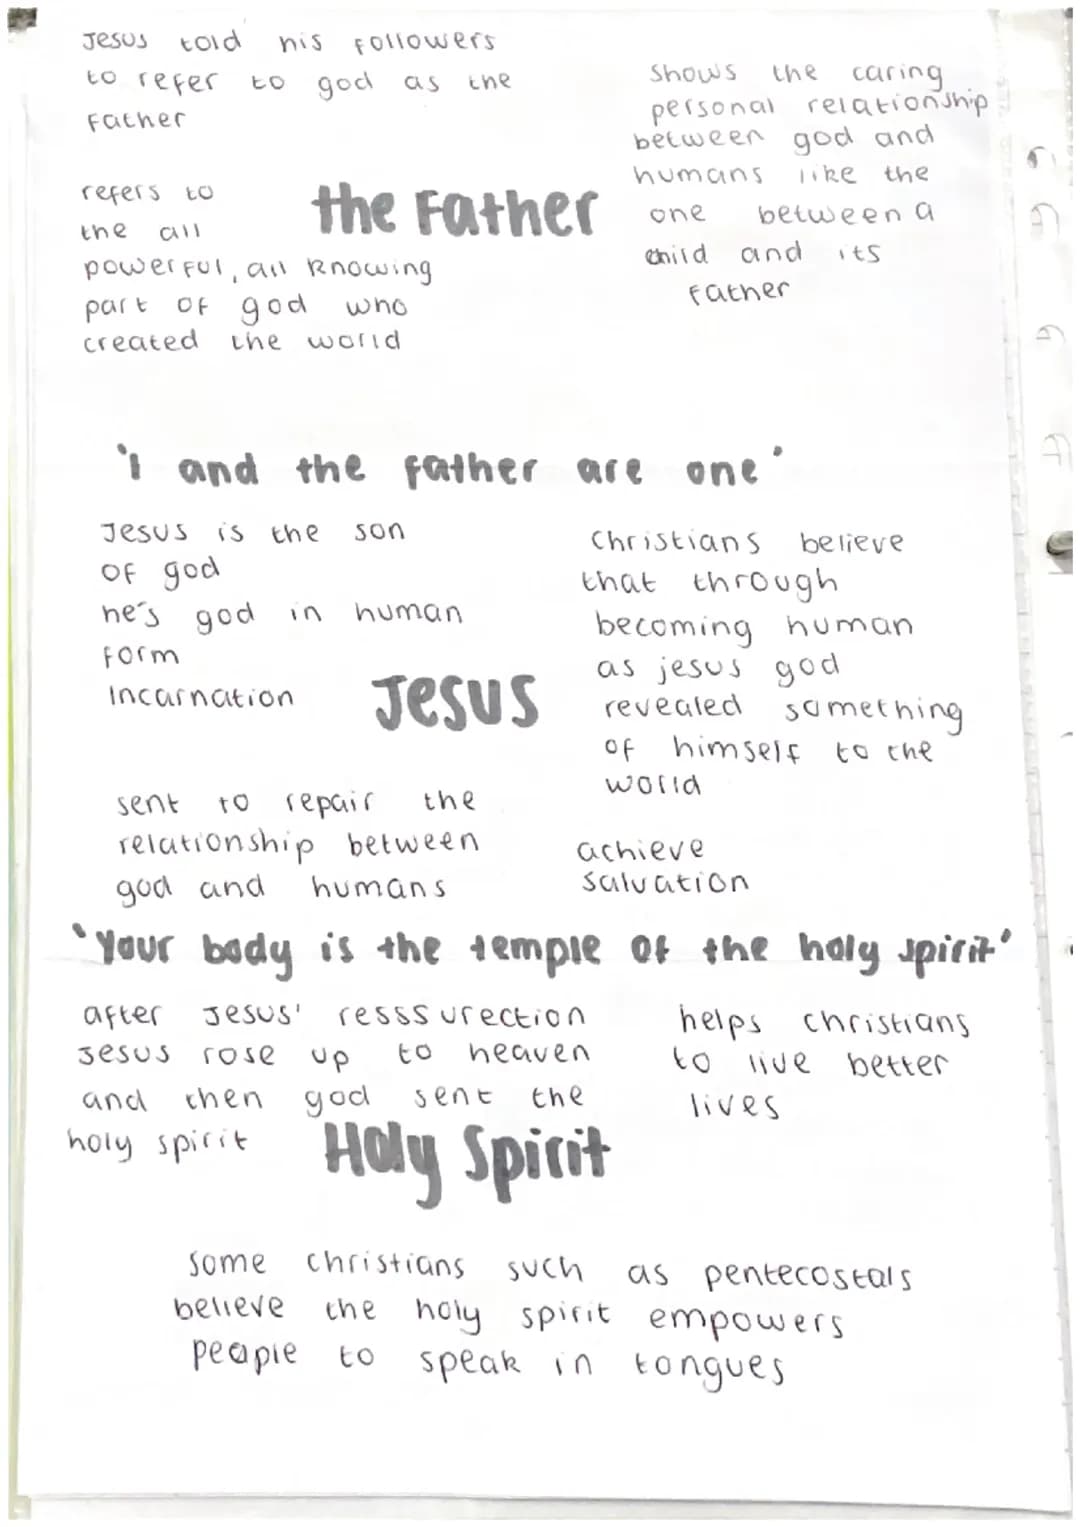 Jesus told his followers
to refer to god as the
Father
shows the caring
personal relationship
between god and
humans like the
one between a
child and its
father
refers to
the all
powerful, all knowing
part of god who
created the world
the Father
'I and the father are one'
Jesus is the son
of god
he's god in human
form
Incarnation
Jesus
Christians believe
that through
becoming human
as jesus god
revealed something
of himself to the
world
sent to repair the
relationship between
god and humans
achieve
salvation
'Your body is the temple of the holy spirit'
after Jesus' resssurection
Jesus rose up to heaven
and then god sent the
holy spirit
helps christians
to live better
lives
Holy Spirit
some christians such as pentecostals
believe the holy spirit empowers
people to speak in tongues